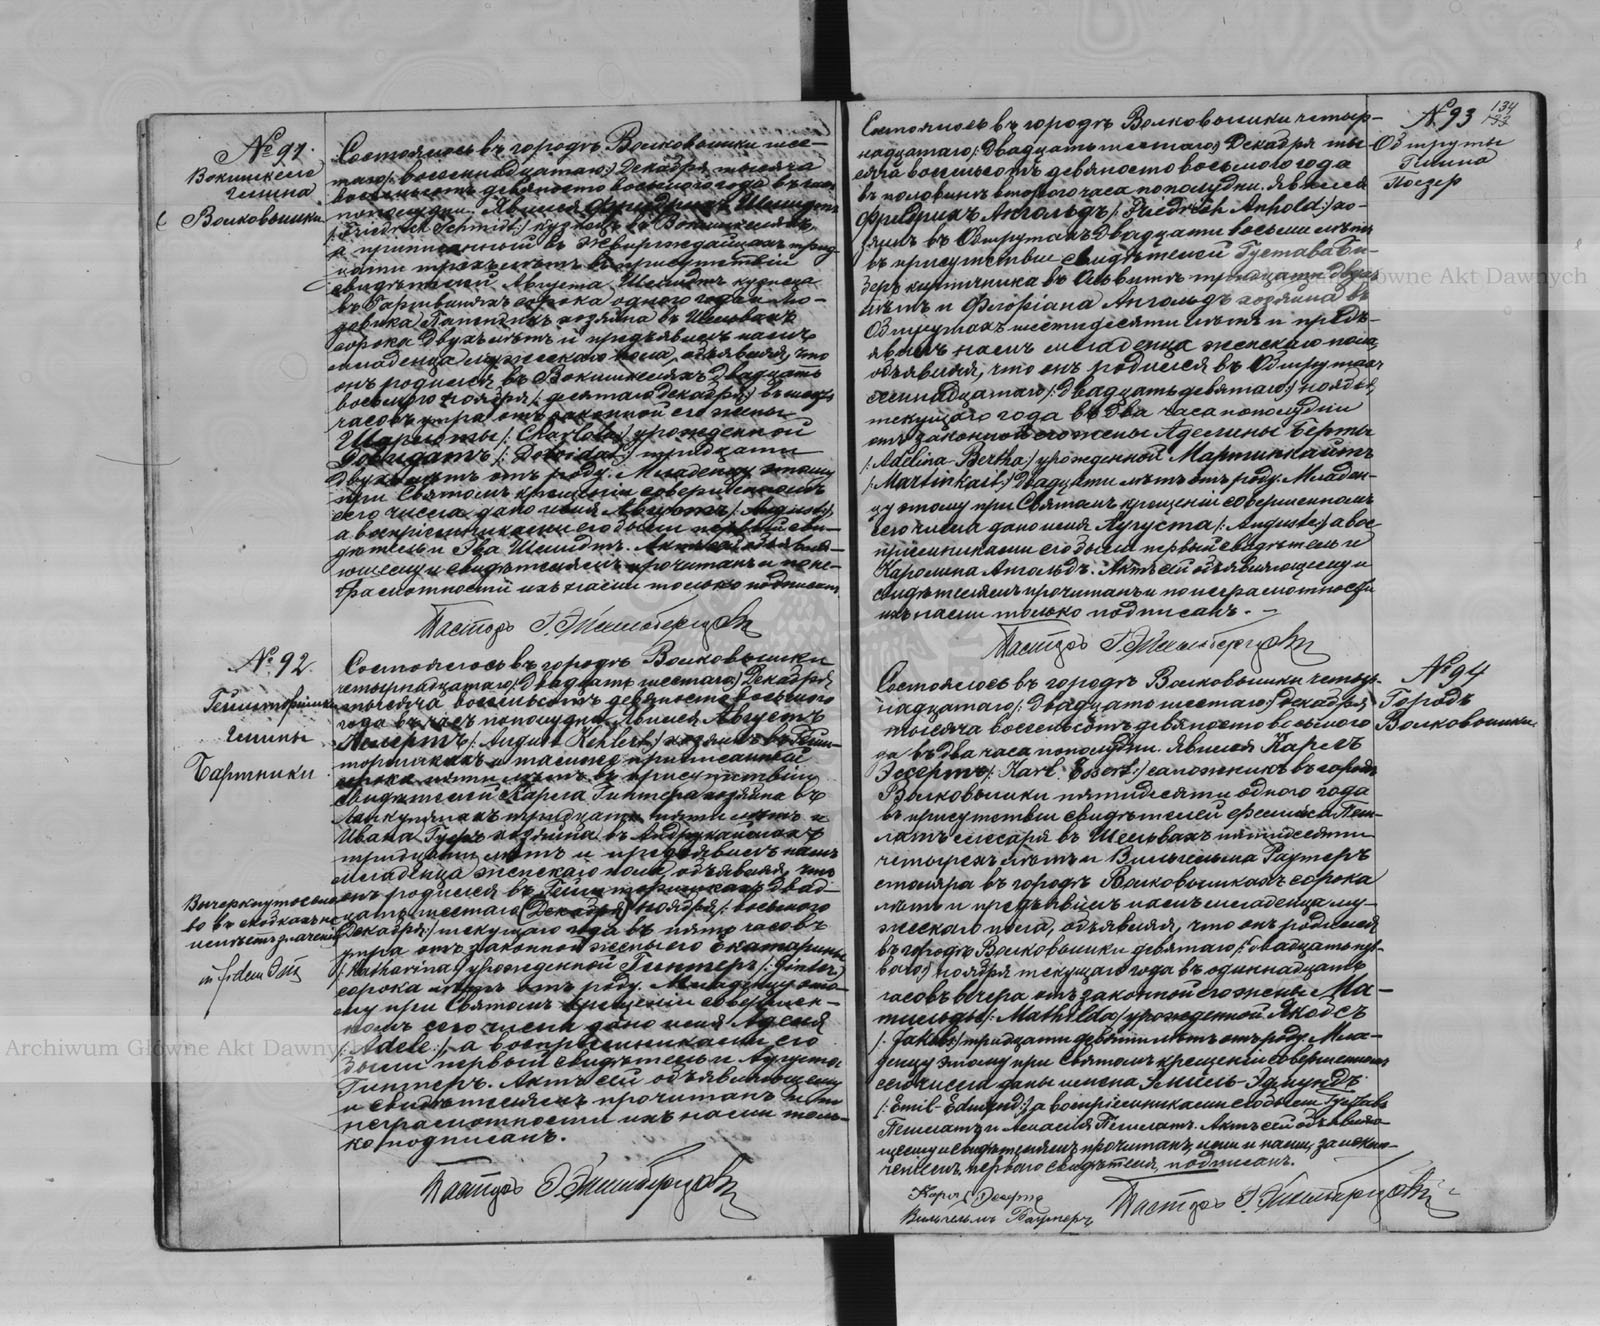 № 91.
Вокишкеле
гмина
Волковышки
Состоялось въ городѣ Волковышки шес-
таго /: восемнадцатаго:/ Декабря тысяча
восемьсотъ девяносто восьмого года въ часъ
пополудни. Явился Фридрихъ Шмидтъ
/: Friedrich Schmidt:/ кузнецъ въ Вокишкеляхъ,
а приписанный въ трид-
цати трехъ лѣтъ въ присутствіи
свидѣтелей Августа Шмидтъ кузнеца
въ сорока одного года и Лю-
довика хозяина въ Шельвахъ
сорока двухъ лѣтъ и предъявилъ намъ
младенца мужескаго пола, объявляя, что
онъ родился въ Вокишкеляхъ двадцать
восьмого Ноября /: десятаго Декабря:/ въ
часовъ утра отъ законной его жены
Шарлоты /: Charlota:/ урожденной
Довидатъ /: Dowidat:/ тридцати
двухъ лѣтъ отъ роду. Младенцу этому
при Святомъ крещеніи совершенномъ
сего числа дано имя Августъ /: August:/,
а воспріемниками его были первый сви-
дѣтель и Эва Шмидтъ. Актъ сей объявля-
ющему и свидѣтелямъ прочитанъ и по не-
грамотности ихъ нами только подписанъ.
Пасторъ
№ 92.
гмины
Бартники
Вычеркнутое сло-
во въ скобкахъ не
имѣетъ значенія
Состоялось въ городѣ Волковышки
четырнадцатаго /: двадцать шестаго:/ Декабря
тысяча восемьсотъ девяносто восьмого
года въ часъ пополудни. Явился Августъ
Келертъ /: August Kehlert:/ хозяинъ въ Гейш-
торишкахъ и тамже приписанный
сорока пяти лѣтъ въ присутствіи
свидѣтелей Карла Гинтера хозяина въ
тридцати пяти лѣтъ и
Ивана хозяина въ
тридцати лѣтъ и предъявилъ намъ
младенца женскаго пола, объявляя, что
онъ родился въ двад-
цать шестаго (Декабря) Ноября /: восьмого
Декабря:/ текущаго года въ пять часовъ
утра отъ законной жены его Екатарины
/: Katharina:/ урожденной Гинтеръ /: Ginter:/
сорока лѣтъ отъ роду. Младенцу это-
му при Святомъ крещеніи совершен-
номъ сего числа дано имя Аделя
/: Adele:/, а воспріемниками его
были первый свидѣтель и Августа
Гинтеръ. Актъ сей объявляющему
и свидѣтелямъ прочитанъ и по
неграмотности ихъ нами толь-
ко подписанъ.
Пасторъ
№ 93
134
Обшруты
Гмина
Поезер
Состоялось въ городѣ Волковышки четыр-
надцатаго /: двадцать шестаго:/ Декабря ты-
сяча восемьсотъ девяносто восьмого года
въ половинѣ второго часа пополудни. Явился
Фридрихъ Ангольдъ /: Friedrich Anhold:/ хо-
зяинъ въ Обшрутахъ двадцати восьми лѣтъ
въ присутствіи свидѣтелей Густава Би-
зеръ кирпичника въ Ольвитѣ тридцати двухъ
лѣтъ и Флоріана Ангольдъ хозяина въ
Обшрутахъ шестидесяти лѣтъ и предъ-
явилъ намъ младенца женскаго пола,
объявляя, что онъ родился въ Обшрутахъ
семнадцатаго /: двадцать девятаго:/ Ноября,
текущаго года въ два часа пополудни
отъ законной его жены Аделины Берты
/: Adelina Bertha:/ урожденной Мартинкайтъ
/: Martinkait:/ двадцати лѣтъ отъ роду. Младен-
цу этому при Святомъ крещеніи совершенномъ
сего числа дано имя Аугуста /: Auguste:/ а вос-
пріемниками его были первый свидѣтель и
Каролина Ангольдъ. Актъ сей объявляющему и
свидѣтелямъ прочитанъ и по неграмотности
ихъ нами только подписанъ.
Пасторъ
№ 94
Городъ
Волковышки.
Состоялось въ городѣ Волковышки четыр-
надцатаго /: двадцать шестаго:/ Декабря
тысяча восемьсотъ девяносто восьмого
года въ два часа пополудни. Явился Карлъ
Эссертъ /: Karl Essert:/ сапожникъ въ городѣ
Волковышки пятидесяти одного года
въ присутствіи свидѣтелей
слесаря въ Шельвахъ пятидесяти
четырехъ лѣтъ и Вильгельма Раутеръ
столяра въ городѣ Волковышкахъ сорока
лѣтъ и предъявилъ намъ младенца му-
жескаго пола, объявляя, что онъ родился
въ городѣ Волковышки девятаго /: двадцать пер-
ваго:/ Ноября текущаго года въ одиннадцать
часовъ вечера отъ законной его жены Ма-
тильды /: Mathilda:/ урожденной Якобсъ
/: Jakobs:/ тридцати девяти лѣтъ отъ роду. Мла-
денцу этому при Святомъ крещеніи совершенномъ
сего числа даны имена Эмиль-Эдмундъ
/: Emil-Edmund:/, а воспріемниками его были Густавъ
и Амалія. Актъ сей объявляю-
щему и свидѣтелямъ прочитанъ, ими и нами, за исклю-
ченіемъ перваго свидѣтеля, подписанъ.
Карлъ Эсертъ
Вильгельмъ Раутеръ
Пасторъ
Archiwum Główne Akt Dawnych
Główne Akt Dawnych